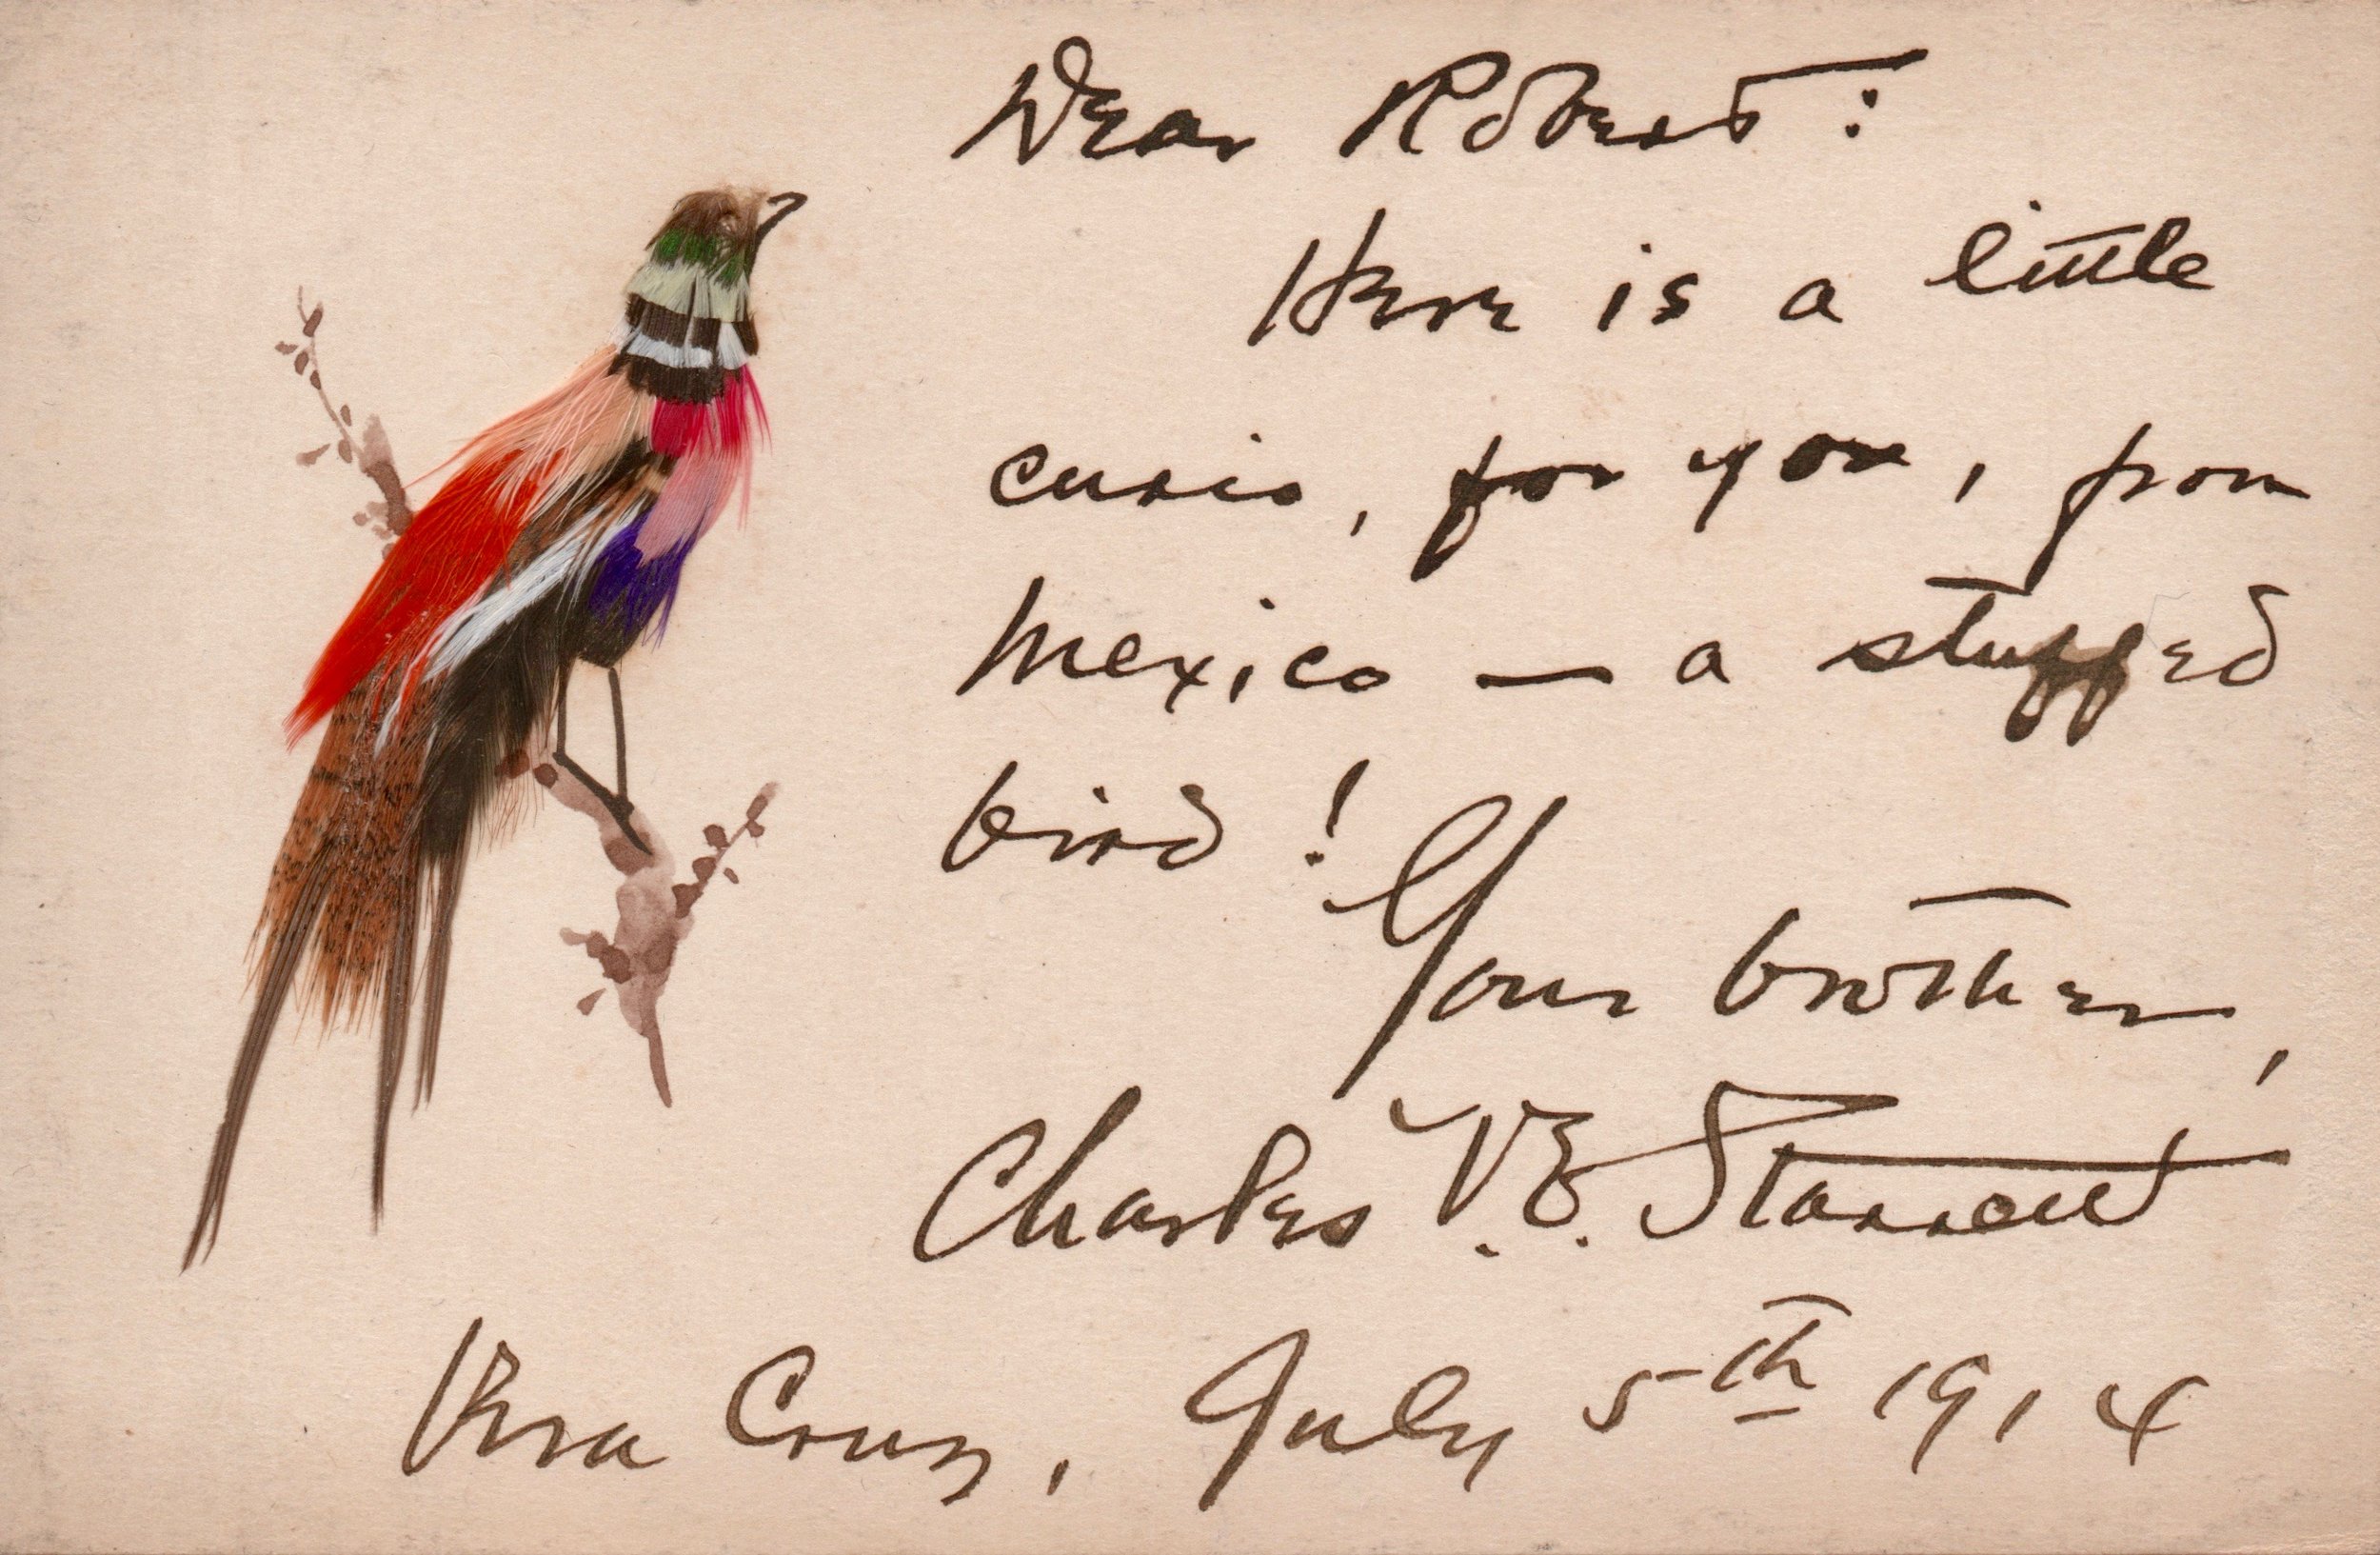 Dear Robert:
Here is a little
curio, for you, from
Mexico — a stuffed
bird!
Your brother,
Charles V.E. Starrett
Vera Cruz, July 5th 1914